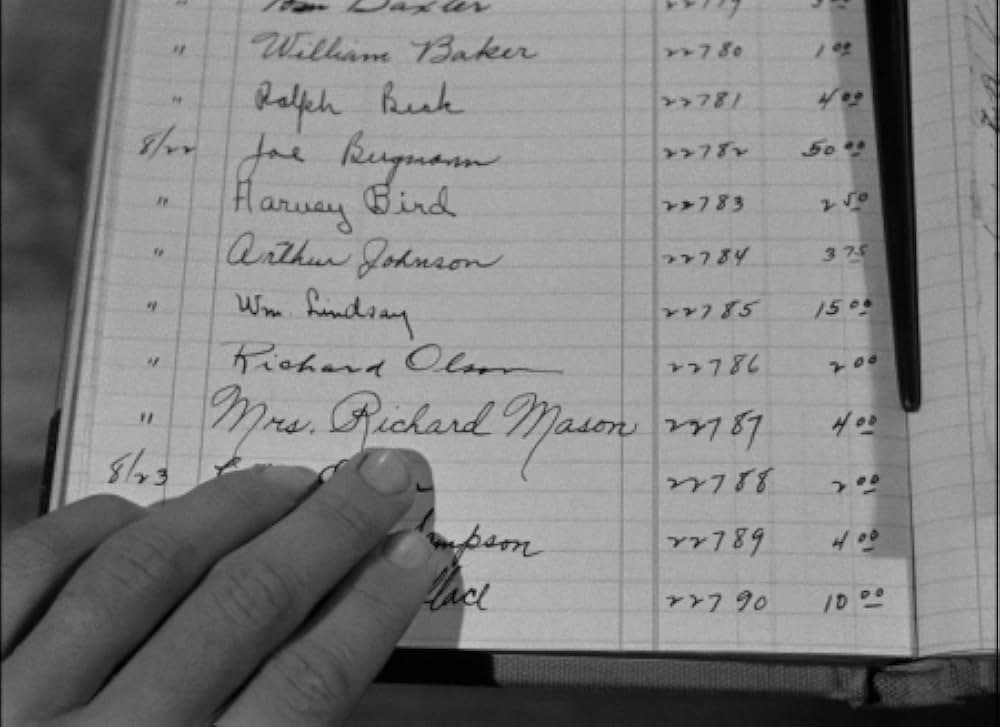 " Tom Baxter 22779
" William Baker 22780 1 00
" Ralph Beck 22781 4 00
8/22 Joe Bergmann 22782 50 00
" Harvey Bird 22783 2 50
" Arthur Johnson 22784 3 75
" Wm. Lindsay 22785 15 00
" Richard Olson 22786 2 00
" Mrs. Richard Mason 22787 4 00
8/23 22788 2 00
mpson 22789 4 00
llace 22790 10 00